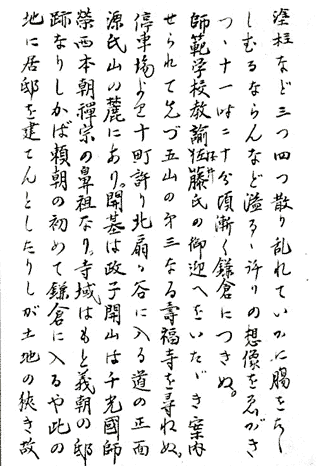 塗柱など三つ四つ散り乱れていかに腸をちゞ
しむるならんなど溢るゝ許りの想像をゑがき
つゝ十一時二十分頃漸く鎌倉につきぬ。
師範学校教諭佐藤氏の御迎へをいたゞき案内
せられて先づ五山の第三なる壽福寺を尋ねぬ。
停車場より十町許り北扇ヶ谷に入る道の正面
源氏山の麓にあり。開基は政子開山は千光國師
榮西本朝禪宗の鼻祖なり。寺域はもと義朝の邸
跡なりしかば頼朝の初めて鎌倉に入るや此の
地に居邸を建てんとしたりしが土地の狹き故